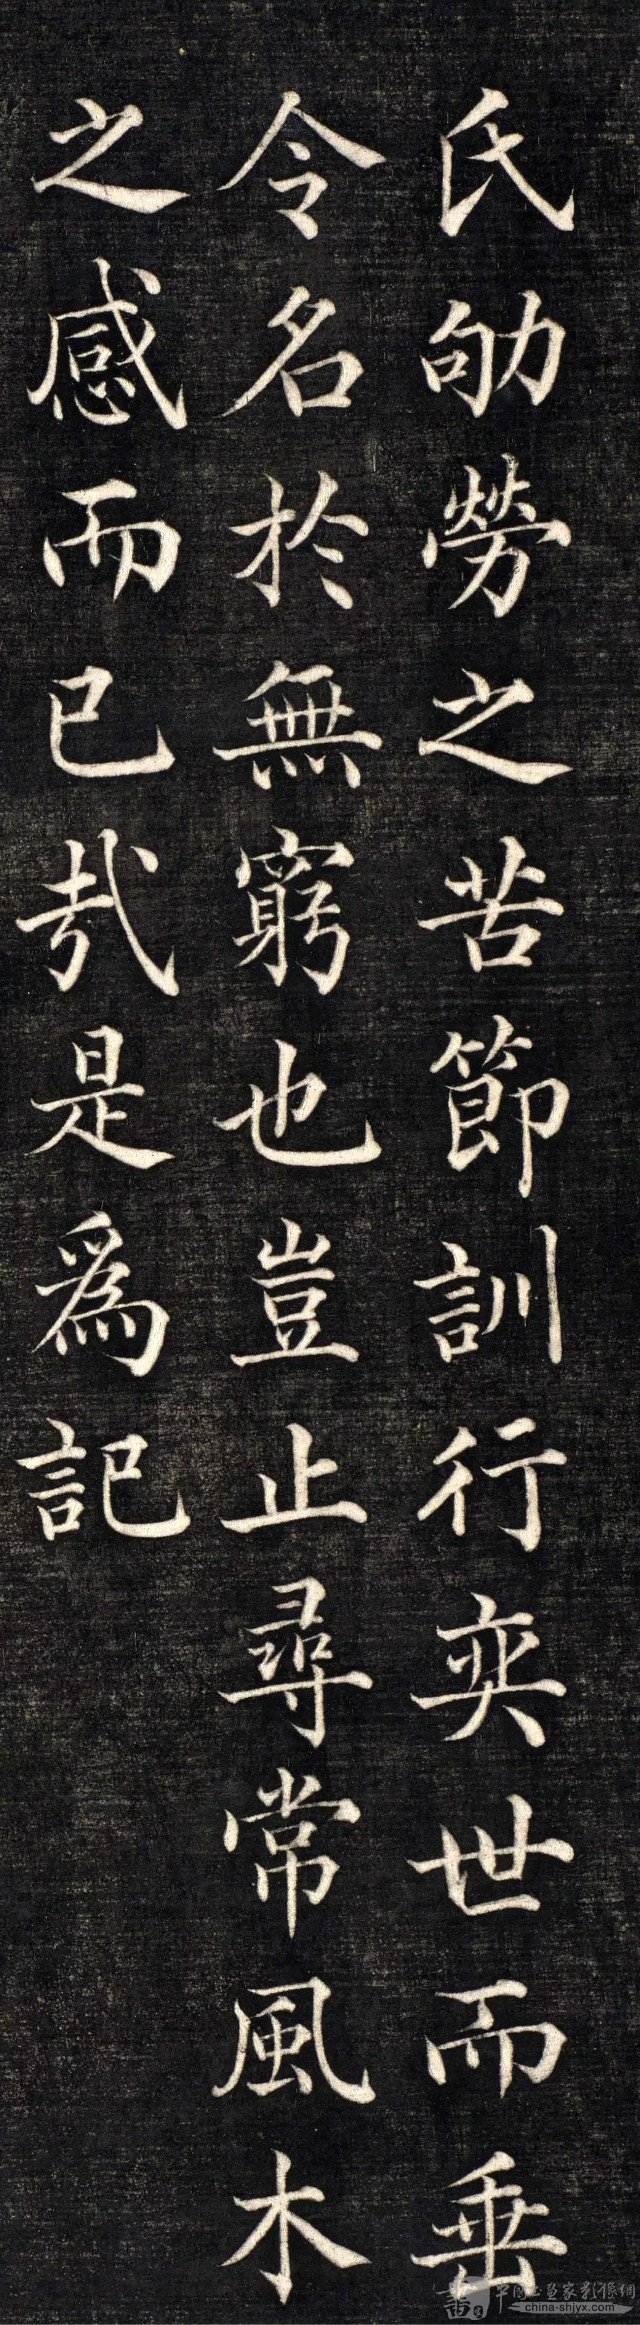 氏劬勞之苦節訓行奕世而垂
令名於無窮也豈止尋常風木
之感而已哉是為記
中國書画家影像網
china-shjyx.com